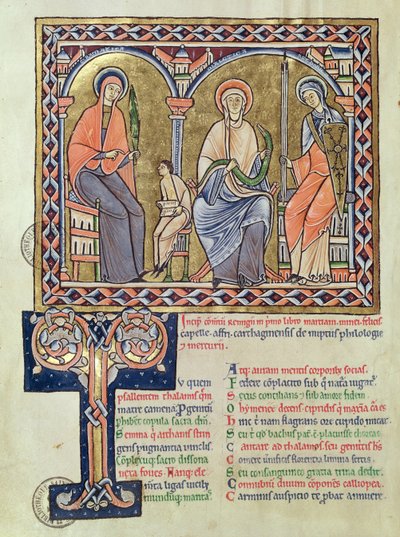 Incip comtu Remigii in pmo libro martiani. minei. felicis
capelle. affri. carthaginensis de nuptiis philologie
& mercurii.
T
U quem
psallentem thalamis quem
matre camena; Pgenitu
phibet copula sacra
Semina q archanis strin
gens pugnantia vinclis
Coplexuq sacro dissona
nexa foves. Nanq; ele
menta ligas vicib;
mundumq; marita
Atq; auram mentis corporib; socias
Federe coplacito sub q nata iugat
Sexus concilians & sub amore fidem
O hymenee decens cipridis q maxia es
flagrans ore cupido micat
Seu bachus pat e placuisse choreas
Cantare ad thalamos seu genetris
Comere florentia limina sertis
Seu consanguineo gratia trina dedit
Connubiu divum coponens calliopea
Carminis auspicio te pbat annuere.